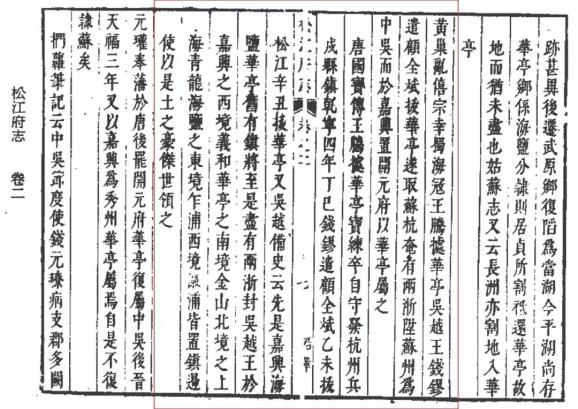 跡甚異後遷武原鄉復陷爲當湖今平湖尚存
華亭鄉係海鹽分隸則居貞所割祗還華亭故
地而猶未盡也姑蘇志又云長洲亦割地入華
亭
黃巢亂僖宗幸蜀海冦王騰據華亭吳越王錢鏐
遣顧全斌後華亭遂取蘇杭奄有兩浙陞蘇州爲
中吳而於嘉興置開元府以華亭屬之
唐國寶傳王騰據華亭寶練卒自守發杭州兵
戍縣鎮乾寧四年丁巳錢鏐遣顧全斌乙未拔
松江府志 卷之二
松江辛丑拔華亭又吳越備史云先是嘉興海
鹽華亭舊有鎮將至是盡有兩浙封吳越王於
嘉興之西境義和華亭之南境金山北境之上
海青龍海鹽之東境乍浦西境澉浦皆置鎮遏
使以是土之豪傑世領之
元瓘奉藩於唐後罷開元府華亭復屬中吳後晉
天福三年又以嘉興爲秀州華亭屬焉自是不復
隸蘇矣
捫蘿筆記云中吳節度使錢元璙病支郡多闕
松江府志 卷二